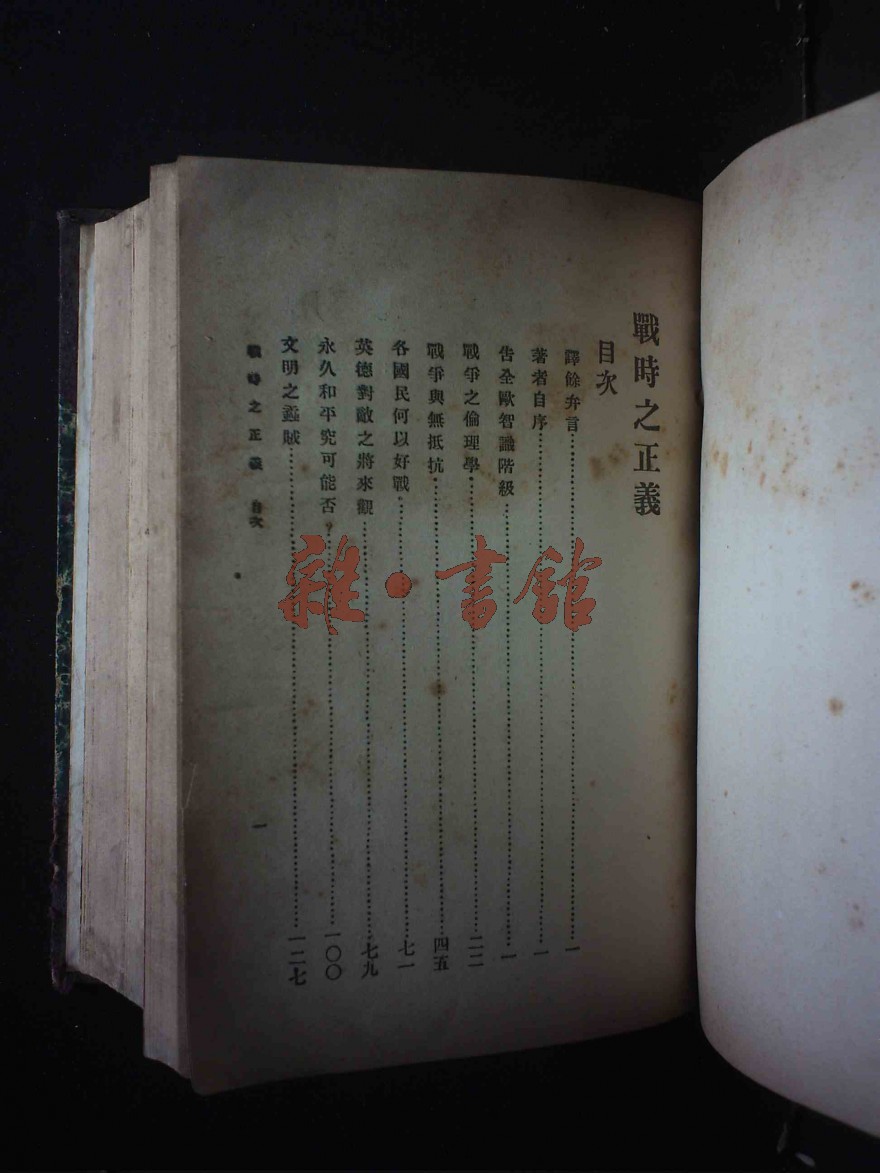 戰時之正義
目次
譯餘弁言………一
著者自序………一
告全歐智識階級………一
戰爭之倫理學………二二
戰爭與無抵抗………四五
各國民何以好戰………七一
英德對敵之將來觀………七九
永久和平究可能否?………一〇〇
文明之蟊賊………一二七
戰時之正義 目次
一
雜·書館